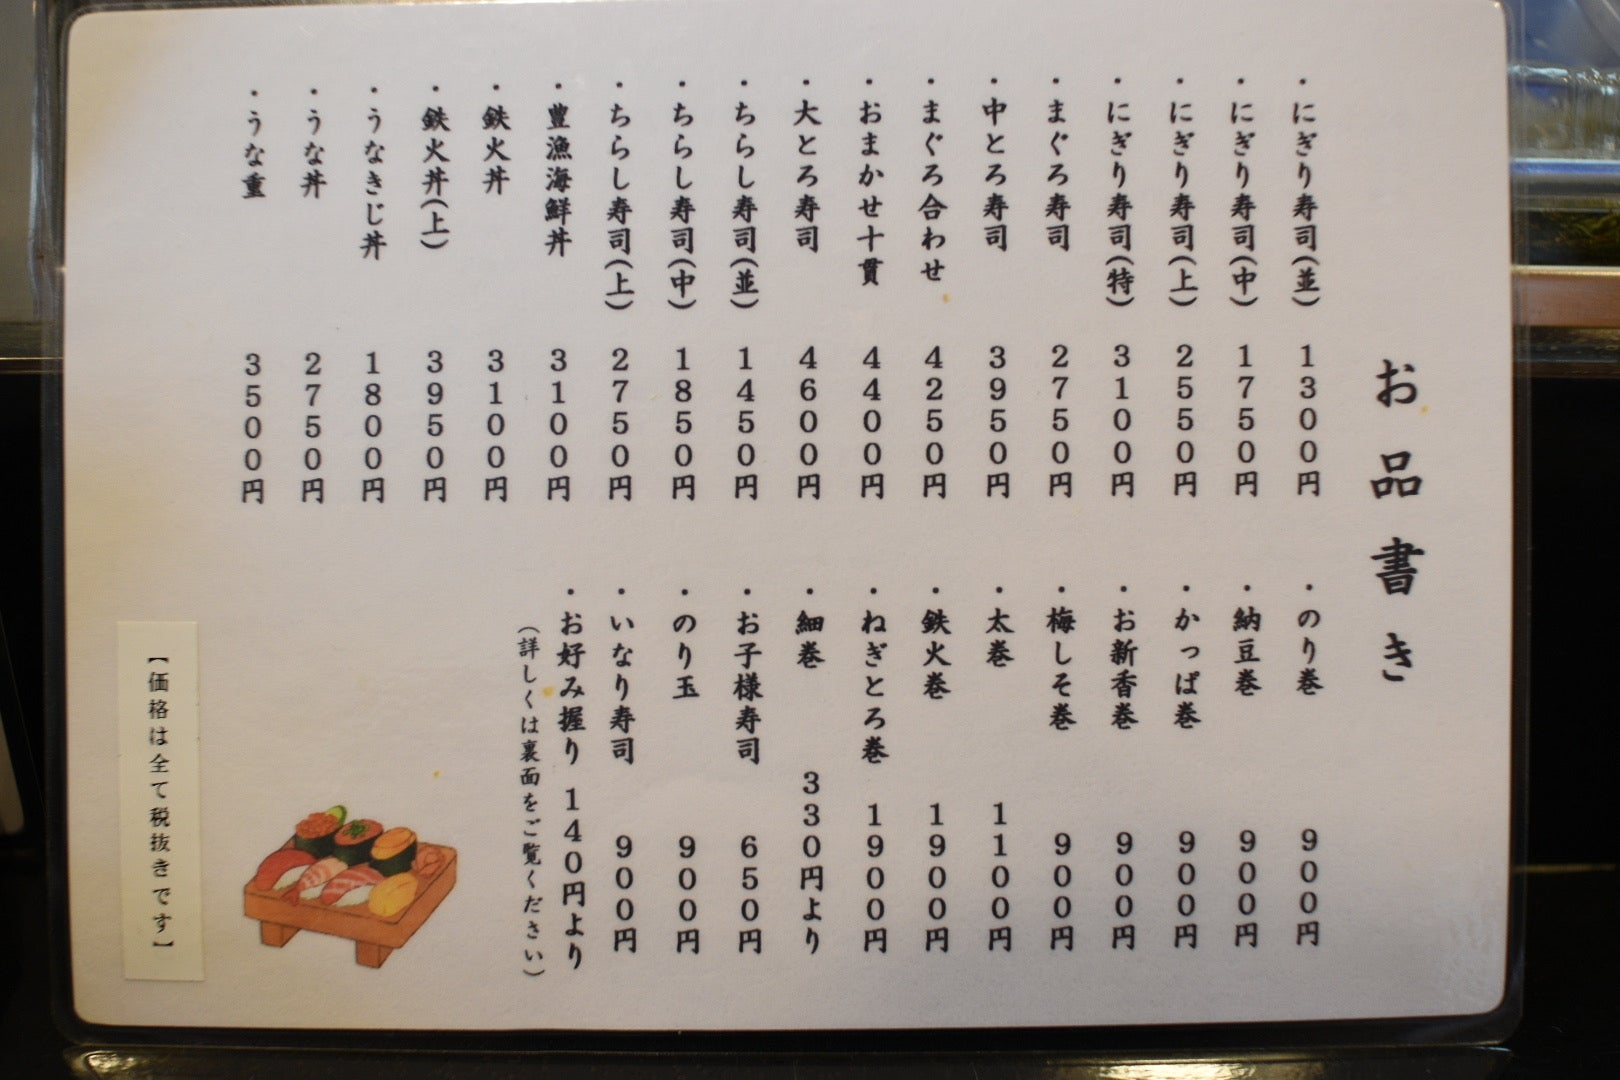 お品書き
・にぎり寿司(並) 1300円
・にぎり寿司(中) 1750円
・にぎり寿司(上) 2550円
・にぎり寿司(特) 3100円
・まぐろ寿司 2750円
・中とろ寿司 3950円
・まぐろ合わせ 4250円
・おまかせ十貫 4400円
・大とろ寿司 4600円
・ちらし寿司(並) 1450円
・ちらし寿司(中) 1850円
・ちらし寿司(上) 2750円
・豊漁海鮮丼 3100円
・鉄火丼 3100円
・鉄火丼(上) 3950円
・うなきじ丼 1800円
・うな丼 2750円
・うな重 3500円
・のり巻 900円
・納豆巻 900円
・かっぱ巻 900円
・お新香巻 900円
・梅しそ巻 900円
・太巻 1100円
・鉄火巻 1900円
・ねぎとろ巻 1900円
・細巻 330円より
・お子様寿司 650円
・のり玉 900円
・いなり寿司 900円
・お好み握り 140円より
(詳しくは裏面をご覧ください)
【価格は全て税抜きです】